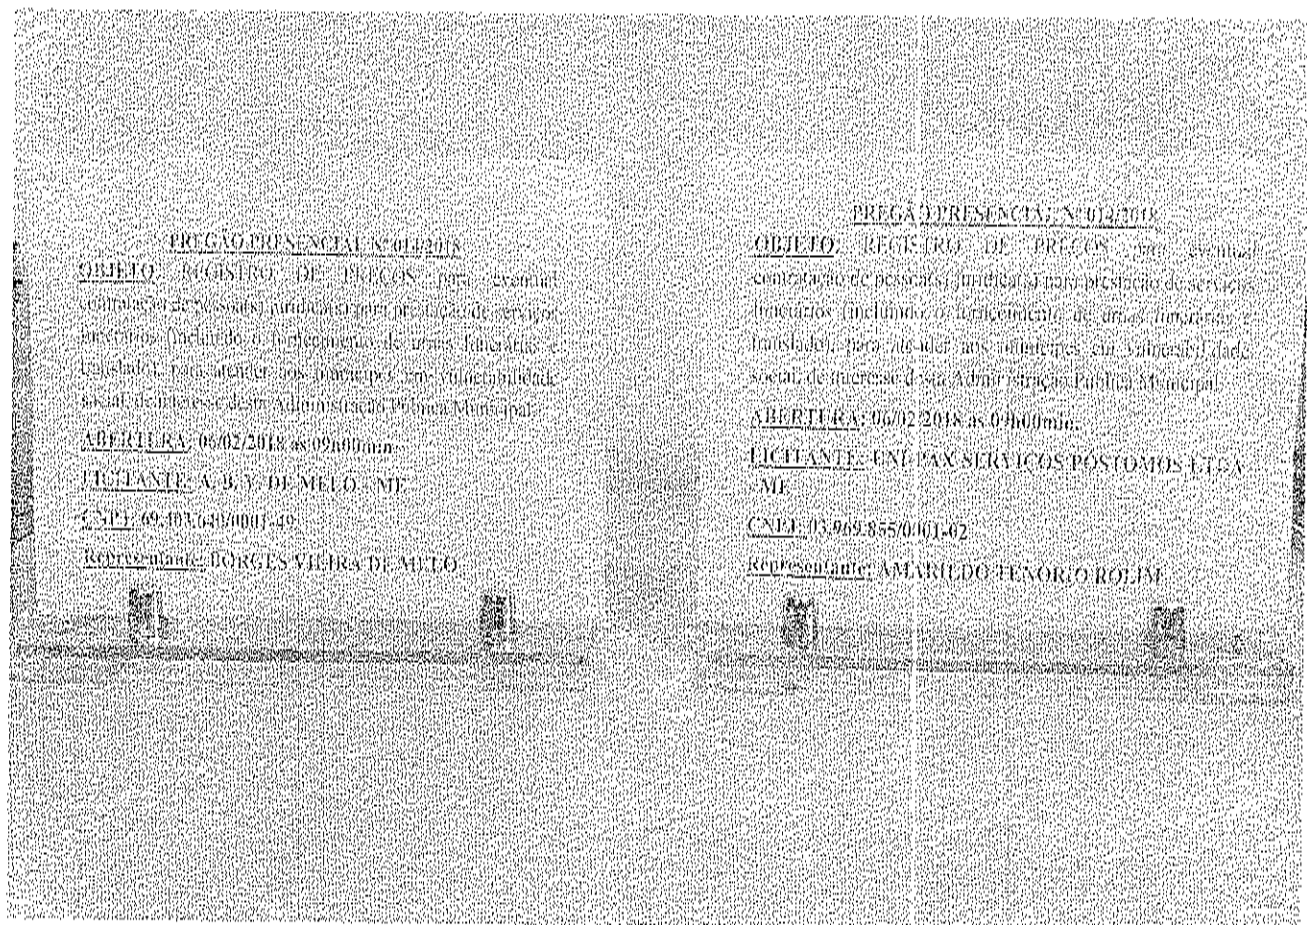 PREGÃO PRESENCIAL Nº 014/2018
OBJETO: REGISTRO DE PREÇOS para eventual
contratação de pessoa(s) jurídica(s) para prestação de serviços
funerários (incluindo o fornecimento de urnas funerárias e
translado), para atender aos munícipes em vulnerabilidade
social, de interesse desta Administração Pública Municipal.
ABERTURA: 06/02/2018 as 09h00min.
LICITANTE: A. B. V. DE MELO - ME
CNPJ: 69.403.640/0001-49
Representante: BORGES VIEIRA DE MELO
PREGÃO PRESENCIAL Nº 014/2018
OBJETO: REGISTRO DE PREÇOS para eventual
contratação de pessoa(s) jurídica(s) para prestação de serviços
funerários (incluindo o fornecimento de urnas funerárias e
translado), para atender aos munícipes em vulnerabilidade
social, de interesse desta Administração Pública Municipal.
ABERTURA: 06/02/2018 as 09h00min.
LICITANTE: UNI PAX SERVIÇOS POSTOMOS LTDA
- ME
CNPJ: 03.969.855/0001-02
Representante: AMARILDO TENORIO ROLIM